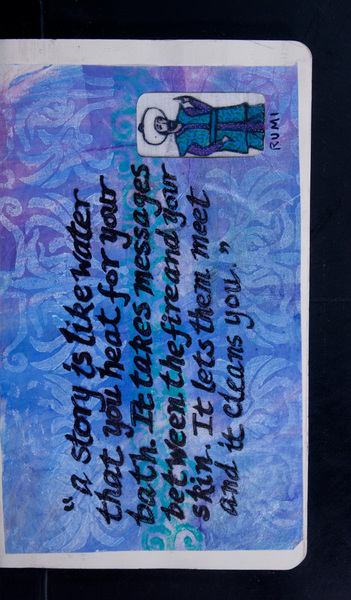 "a story is like water
that you heat for your
bath. It takes messages
between the fire and your
skin. It lets them meet
and it cleans you."
RUMI